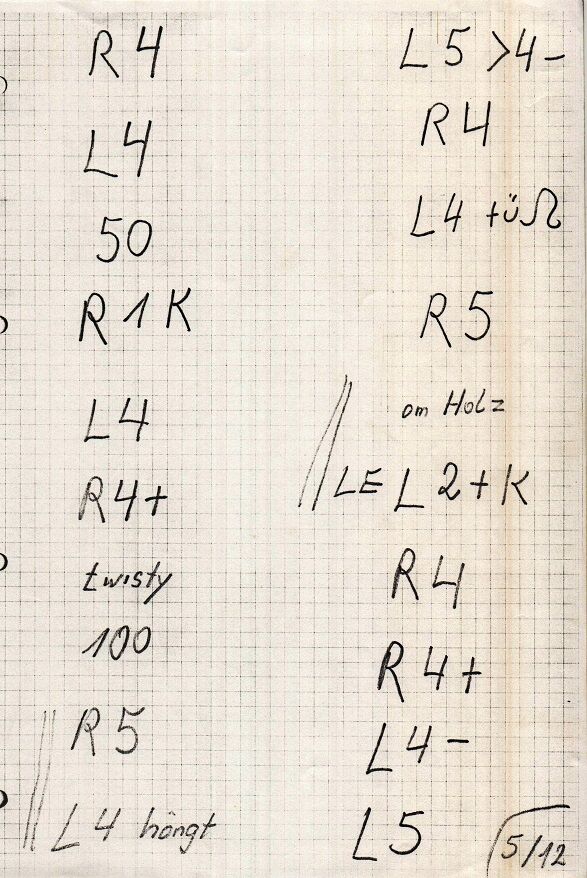 R 4
L 4
50
R 1 K
L 4
R 4 +
twisty
100
R 5
L 4 hängt
L 5 > 4 -
R 4
L 4 + ü Ω
R 5
am Holz
LE L 2 + K
R 4
R 4 +
L 4 -
L 5
5/12